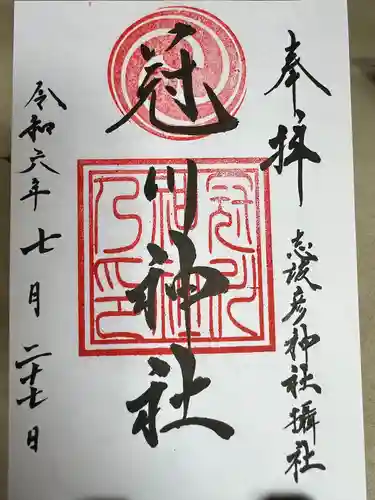 奉拝
志波彦神社攝社
冠川神社
令和六年七月二十七日